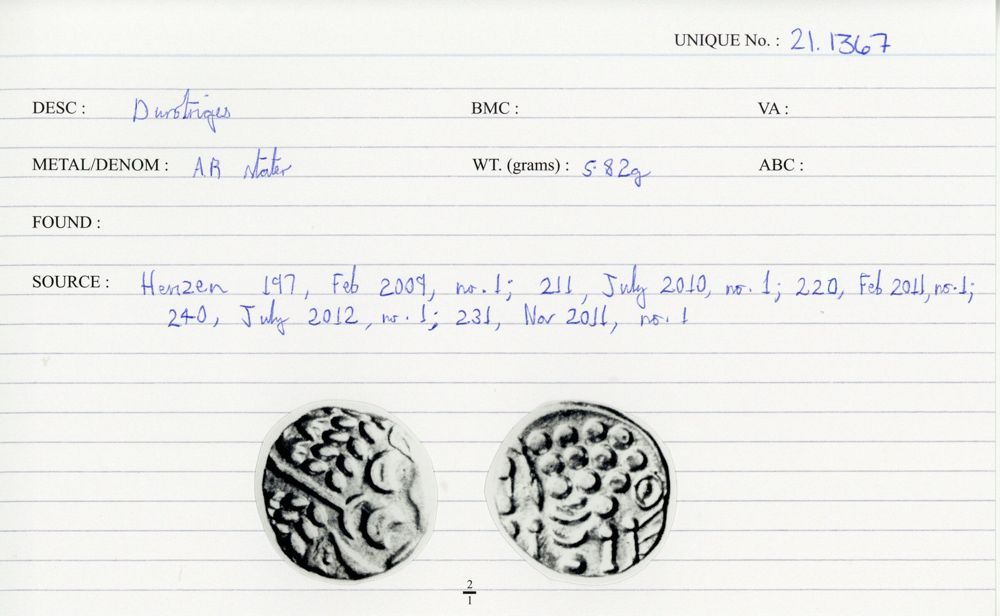 UNIQUE No. : 21.1367
DESC : Durotriges BMC : VA :
METAL/DENOM : AR stater WT. (grams) : 5.82g ABC :
FOUND :
SOURCE : Henzen 197, Feb 2009, no.1; 211, July 2010, no. 1; 220, Feb 2011, no.1;
240, July 2012, no. 1; 231, Nov 2011, no. 1
2
1